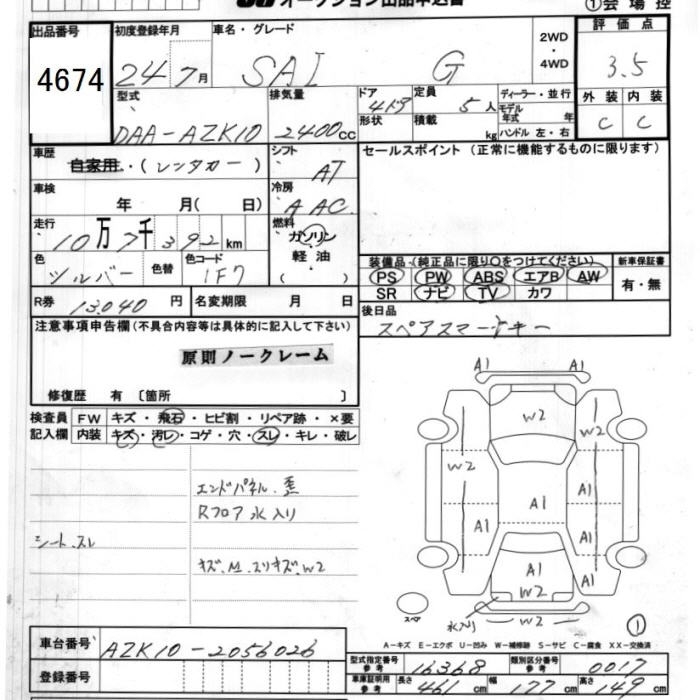 オークション出品申込書 ①会場控
出品番号 初度登録年月 車名・グレード 2WD ・ 4WD 評価点
4674 24年7月 SAI G 3.5
型式 排気量 ドア 4ドア 定員 5人 ディーラー・並行 外装 内装
DAA-AZK10 2400cc 形状 積載 kg モデル年式 年 ハンドル 左・右 C C
車歴 自家用・(レンタカー) シフト AT セールスポイント (正常に機能するものに限ります)
車検 年 月( 日) 冷房 AAC
走行 10万7千392km 燃料 ガソリン 軽油
色 シルバー 色替 色コード 1F7 装備品 (純正品に限り〇をつけてください) 新車保証書
PS PW ABS エアB AW 有・無
SR ナビ TV カワ
R券 13,040円 名変期限 月 日 後日品
スペアスマートキー
注意事項申告欄 (不具合内容等は具体的に記入して下さい)
原則ノークレーム
修復歴 有 〔箇所 〕
検査員 FW キズ・飛石・ヒビ割・リペア跡・×要
記入欄 内装 キズ・汚レ・コゲ・穴・スレ・キレ・破レ
エンドパネル歪
Rフロア水入り
シートスレ
キズ、M、スリキズ、W2
A1 A1
W2 W2
W2
A1 A1
A1 A1
A1 A1
W2
水入り W2
スペア ①
A-キズ E-エクボ U-凹み W-補修跡 S-サビ C-腐食 XX-交換済
車台番号 AZK10-2056026
型式指定番号 参考 16368 類別区分番号 参考 0017
登録番号 車庫証明用 参考 長さ 461cm 幅 177cm 高さ 149cm